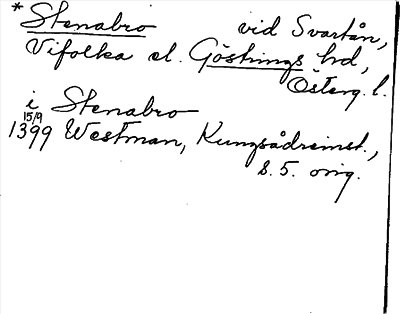 * Stenabro vid Svartån,
Vifolka el. Göstrings hd,
Österg. l.
i Stenabro
15/9
1399 Westman, Kungsådreinst.,
s. 5. orig.